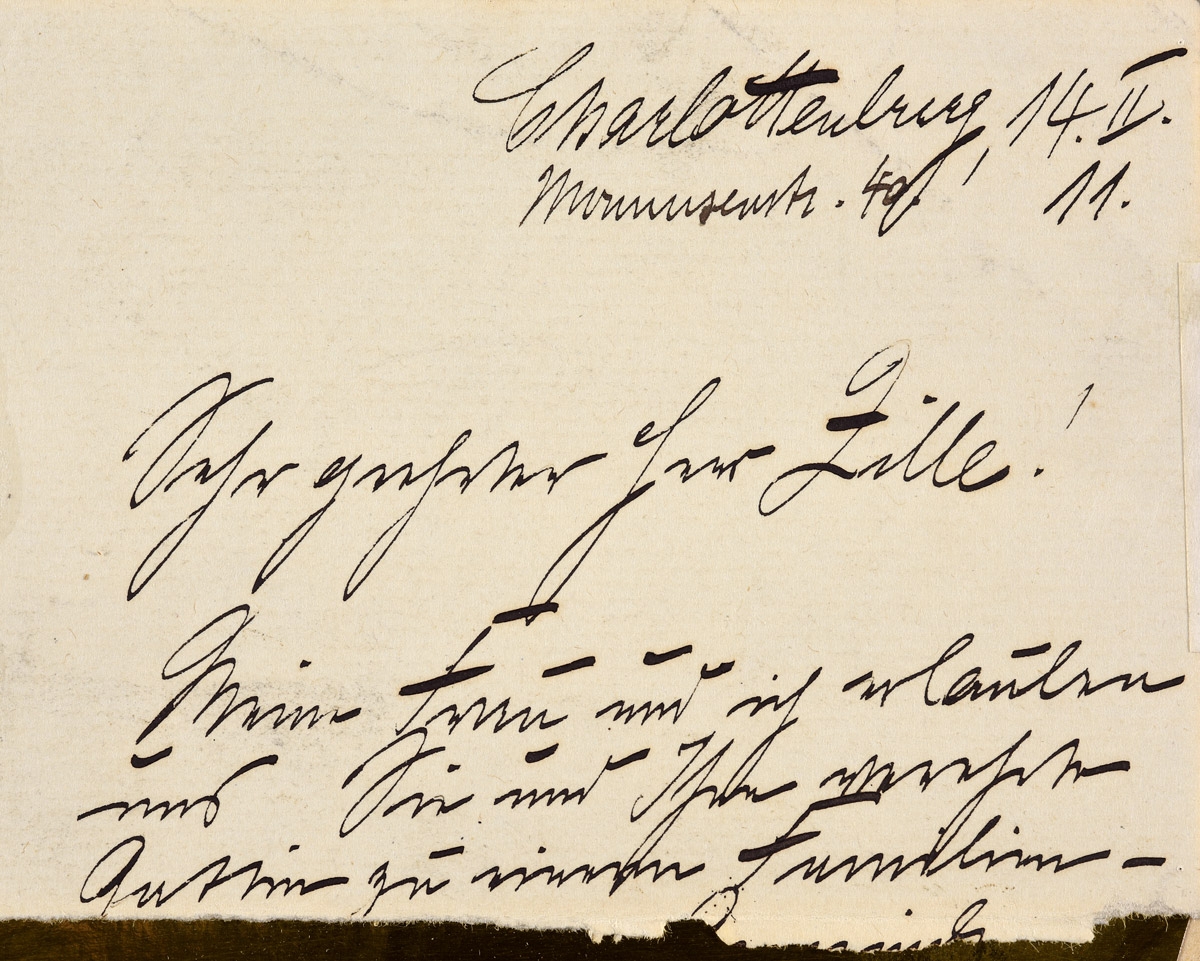 Charlottenburg, 14. II.
Mommsenstr. 49! 11.
Sehr geehrter Herr Zille!
Meine Frau und ich erlauben
uns Sie und Ihre verehrte
Gattin zu einem Familien-